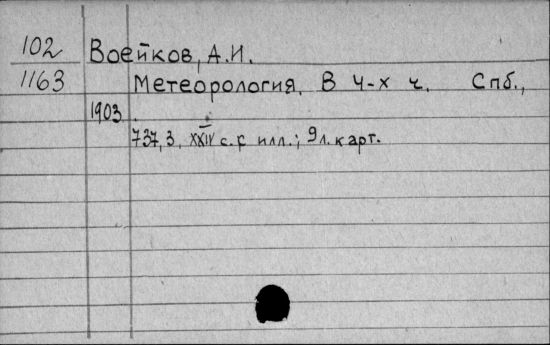 102 Воейков, А.И.
1163 Метеорология. В 4-х ч. Спб.,
1903.
737, 3, XXIV с. с илл.; 9 л. карт.